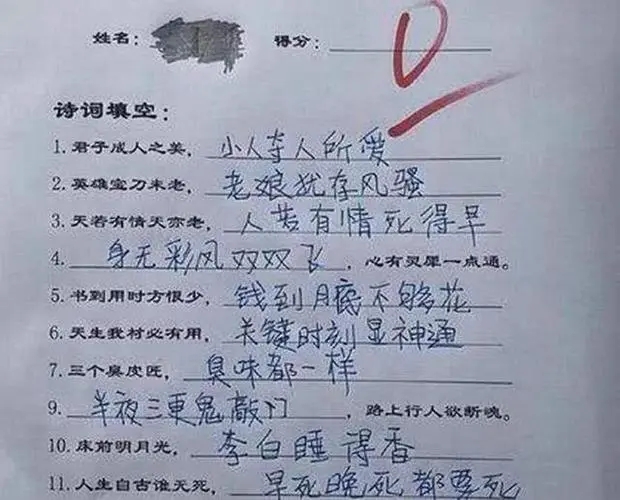 姓名： 得分： 0
诗词填空：
1. 君子成人之美，小人夺人所爱
2. 英雄宝刀未老，老娘犹存风骚
3. 天若有情天亦老，人若有情死得早
4. 身无彩风双双飞，心有灵犀一点通。
5. 书到用时方恨少，钱到月底不够花
6. 天生我材必有用，关键时刻显神通
7. 三个臭皮匠，臭味都一样
9. 半夜三更鬼敲门，路上行人欲断魂。
10. 床前明月光，李白睡得香
11. 人生自古谁无死，早死晚死都要死